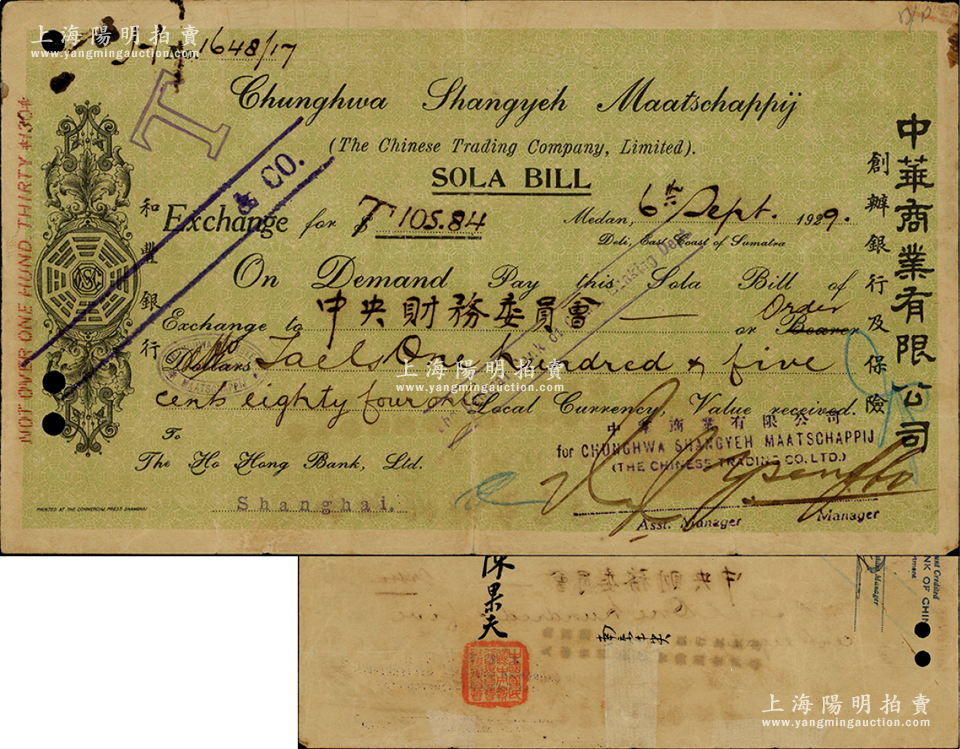 上海陽明拍賣
www.yangmingauction.com
1648/17
Chunghwa Shangyeh Maatschappij
(The Chinese Trading Company, Limited).
SOLA BILL
Exchange for T 105.84
Medan, 6th Sept. 1929.
Deli, East Coast of Sumatra
On Demand Pay this Sola Bill of
Exchange to 中央財務委員會 or Bearer Order
Dollars Taels One hundred & five
cents eighty four only Local Currency, Value received.
To
The Ho Hong Bank, Ltd.
Shanghai.
中華商業有限公司
for CHUNGHWA SHANGYEH MAATSCHAPPIJ
(THE CHINESE TRADING CO. LTD.)
Asst. Manager
Manager
PRINTED AT THE COMMERCIAL PRESS SHANGHAI
NOT OVER ONE HUND. THIRTY $130$
和豐銀行
中華商業有限公司
創辦銀行及保險
T
& CO.
MAATSCHAPPIJ
陳果夫
中央財務委員會
上海陽明拍賣
www.yangmingauction.com